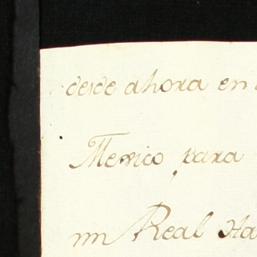 desde ahora en
Mexico para
un Real Ha